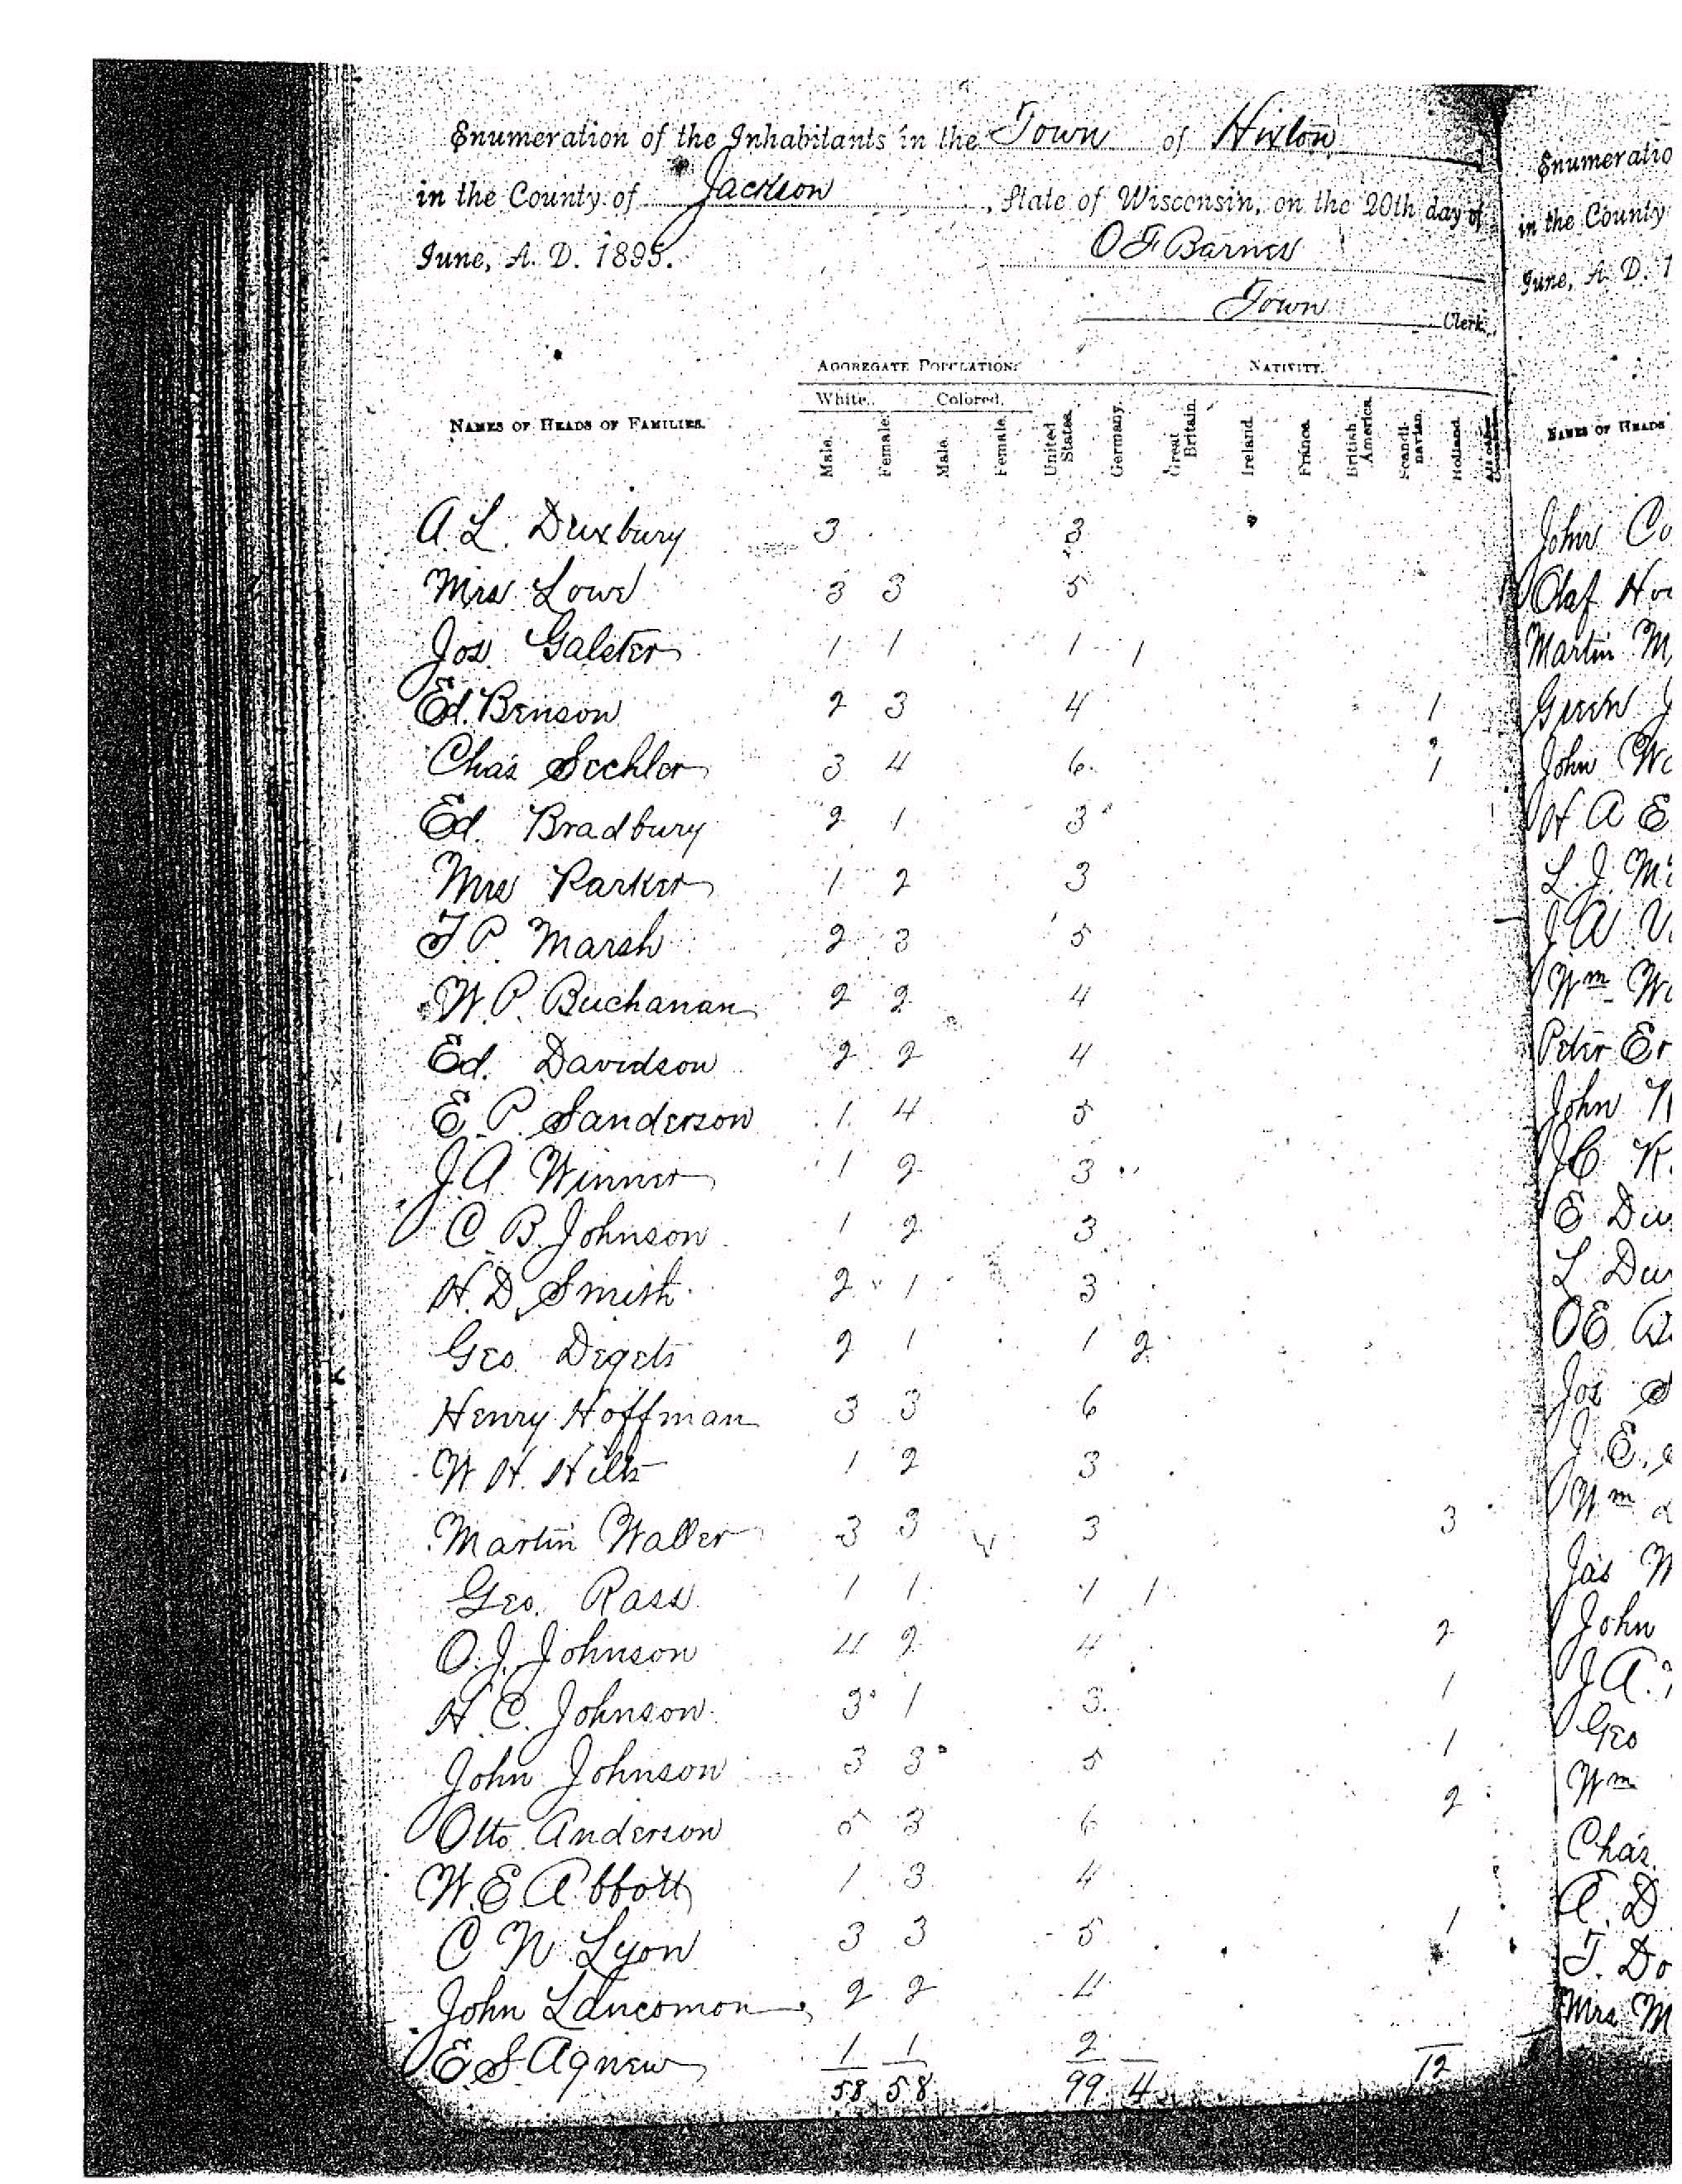 Enumeration of the Inhabitants in the Town of Hixton
in the County of Jackson, State of Wisconsin, on the 20th day of
June, A. D. 1895. O F Barnes
Town Clerk.
AGGREGATE POPULATION. NATIVITY.
White. Colored.
NAMES OF HEADS OF FAMILIES. Male. Female. Male. Female. United States. Germany. Great Britain. Ireland. France. British America. Scandinavian. Holland.
A. L. Duxbury 3 3
Mrs Lowe 3 3 5
Jos. Galster 1 1 1 1
Ed. Benson 2 3 4 1
Chas Sechler 3 4 6 1
Ed. Bradbury 2 1 3
Mrs Parker 1 2 3
T. P. Marsh 2 3 5
W. P. Buchanan 2 2 4
Ed. Davidson 2 2 4
E. P. Sanderson 1 4 5
J. A Winner 1 2 3
C. B. Johnson 1 2 3
H. D. Smith 2 1 3
Geo. Degets 2 1 1 2
Henry Hoffman 3 3 6
W. H. Hilts 1 2 3
Martin Waller 3 3 3 3
Geo. Rass 1 1 1 1
O. J. Johnson 4 2 4 2
H. C. Johnson 3 1 3 1
John Johnson 3 3 5 1
Otto Anderson 5 3 6 2
W. E. Abbott 1 3 4
C N Lyon 3 3 5 1
John 2 2 4
E. S. Agnew 1 1 2
58 58 99 4 12
Enumeratio
in the County
June, A. D. 1
NAMES OF HEADS
John Co
Olaf
Martin M
Green J
John
H A E
L. J. M
J W
Wm
Peter Er
John
J C K
E
L
O E
Jos
J. E.
Wm
Jas
John
J A.
Geo
Wm
Chas.
A. D
T. Do
Mrs M